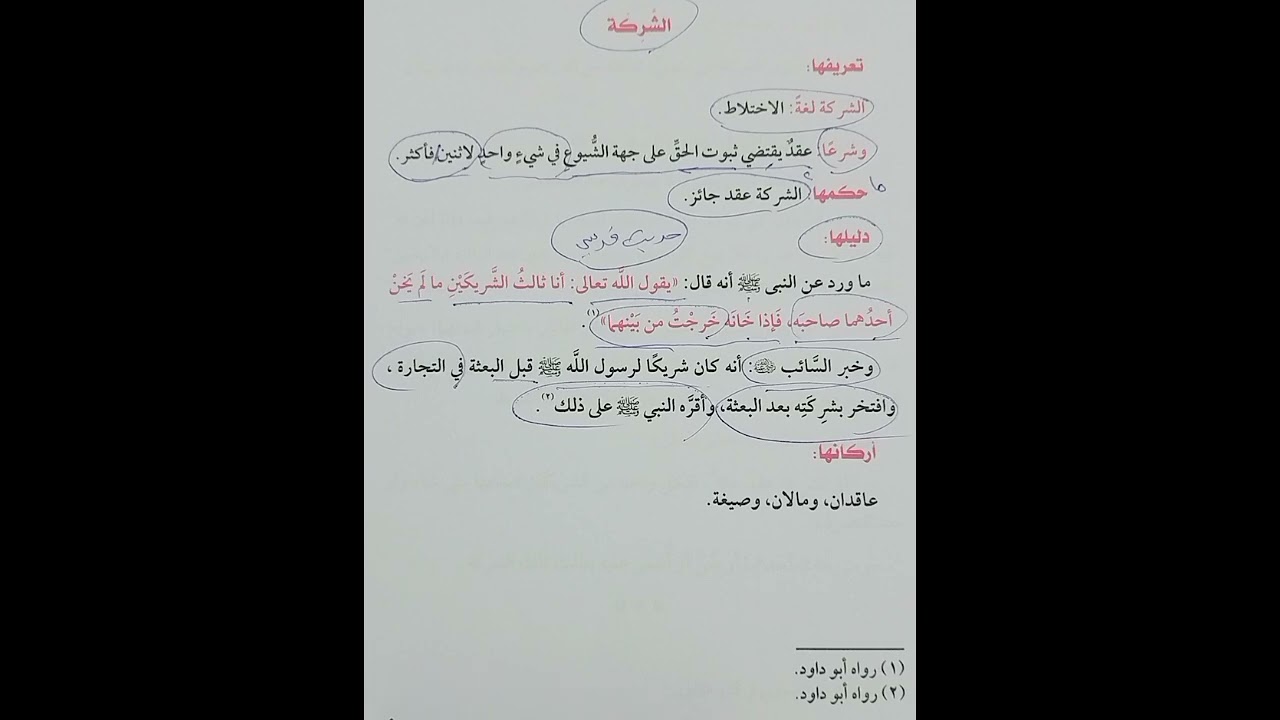 الشركة
تعريفها:
الشركة لغةً: الاختلاط.
وشرعًا: عقدٌ يقتضي ثبوت الحقِّ على جهة الشُّيوعِ في شيءٍ واحدٍ لاثنين فأكثر.
حكمها: الشركة عقد جائز.
دليلها:
حديث قدسي
ما ورد عن النبى ﷺ أنه قال: «يقول اللَّه تعالى: أنا ثالثُ الشَّريكَيْنِ ما لَم يَخنْ
أحدُهما صاحبَه، فَإذا خَانَه خَرجْتُ من بَيْنهما»(١).
وخبر السَّائب رضي الله عنه: أنه كان شريكًا لرسول اللَّه ﷺ قبل البعثة في التجارة ،
وافتخر بشرِكَتِه بعد البعثة، وأقرَّه النبي ﷺ على ذلك(٢).
أركانها:
عاقدان، ومالان، وصيغة.
(١) رواه أبو داود.
(٢) رواه أبو داود.